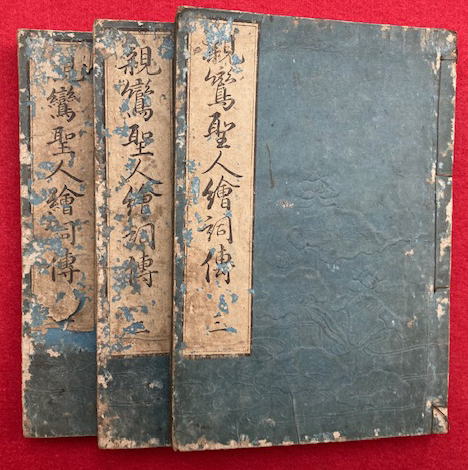 親鸞聖人繪詞傳
親鸞聖人繪詞傳
鸞聖人繪詞傳